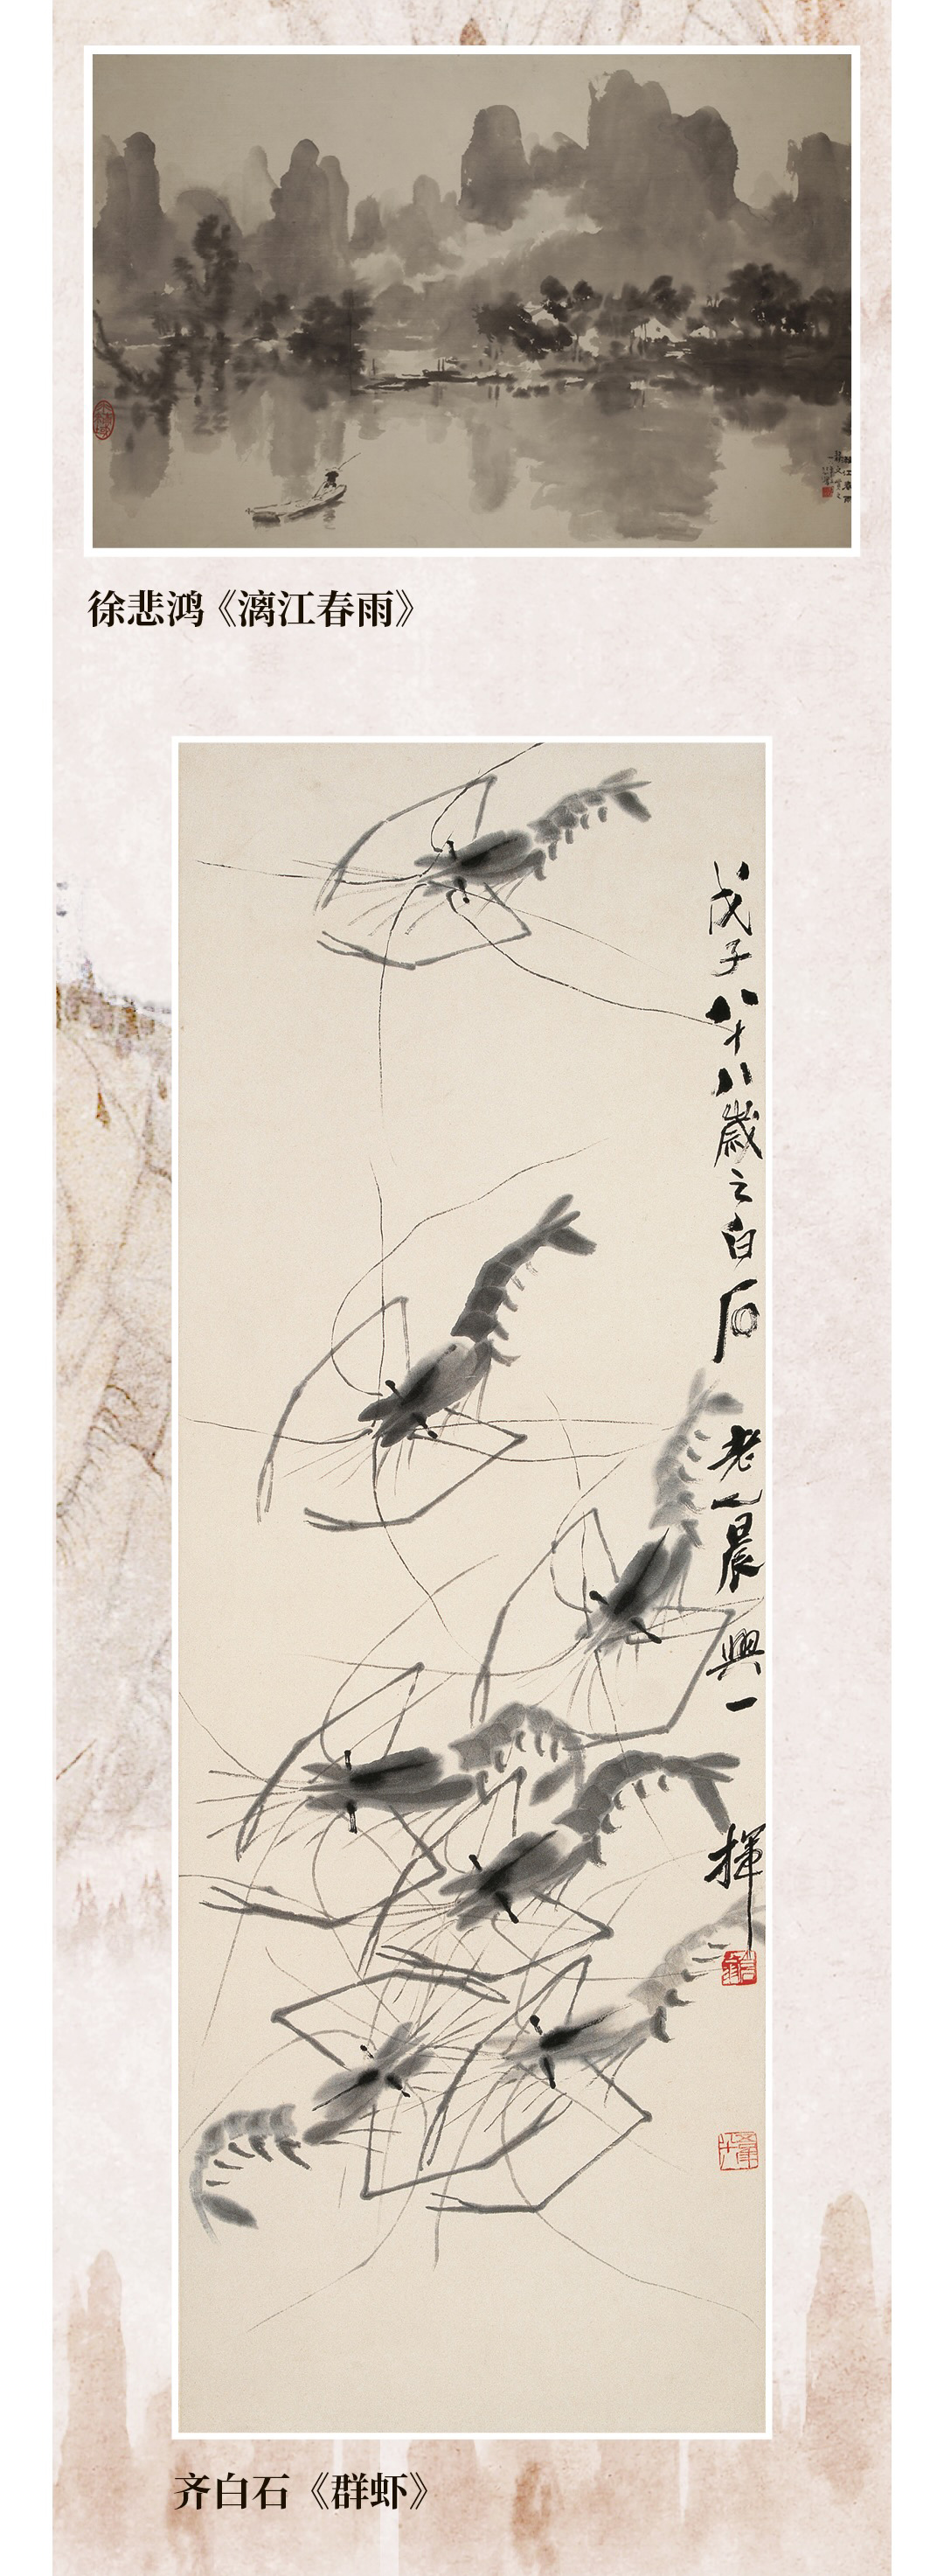 徐悲鸿《漓江春雨》
戊子八十八歲之白石老人晨興一揮
齐白石《群虾》